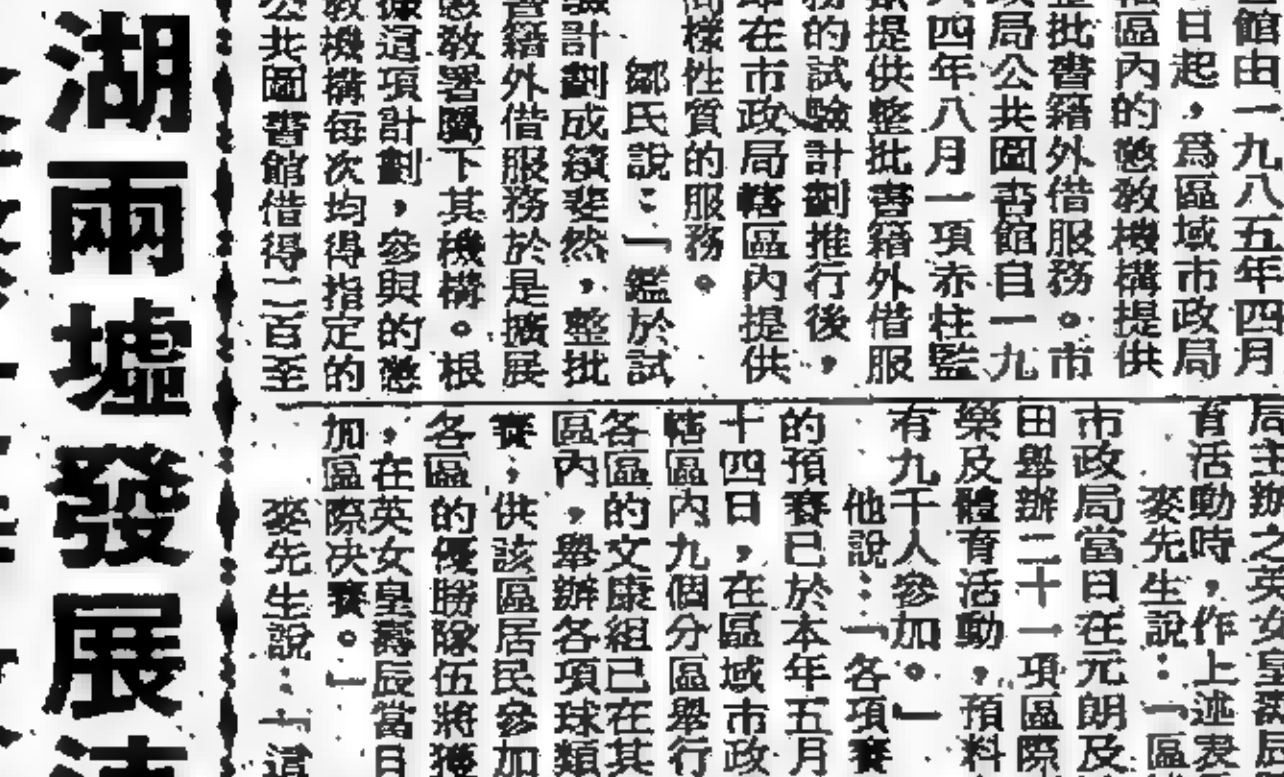 館由一九八五年四月
日起，為區域市政局
區內的懲敎機構提供
整批書籍外借服務。市
政局公共圖書館自一九
八四年八月一項赤柱監
獄提供整批書籍外借服
務的試驗計劃推行後，
即在市政局轄區內提供
同樣性質的服務。
鄒民說：「鑑於試
驗計劃成績斐然，整批
書籍外借服務於是擴展
懲敎署屬下其機構。根
據這項計劃，參與的懲
敎機構每次均得指定的
公共圖書館借得二百至
局主辦之英女皇壽辰
育活動時，作上述表
麥先生說：「區
市政局當日在元朗及
田舉辦二十一項區際
樂及體育活動，預料
有九千人參加。」
他說：「各項賽
的預賽已於本年五月
十四日，在區域市政
轄區內九個分區舉行
各區的文康組已在其
區內，舉辦各項球類
賽，供該區居民參加
各區的優勝隊伍將獲
，在英女皇壽辰當日
加區際決賽。」
麥先生說：「這
湖兩墟發展